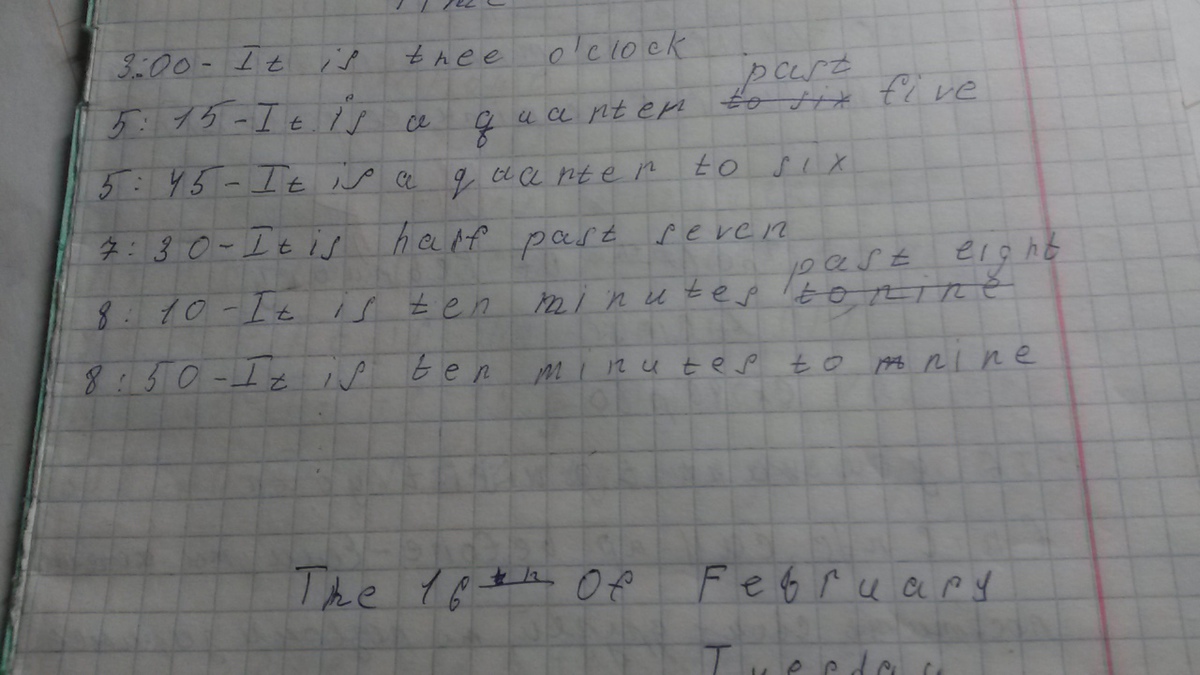 Time
3:00 - It is thee o'clock
5:15 - It is a quarter to six past five
5:45 - It is a quarter to six
7:30 - It is half past seven
8:10 - It is ten minutes to nine past eight
8:50 - It is ten minutes to nine
The 16th Of February
Tuesday